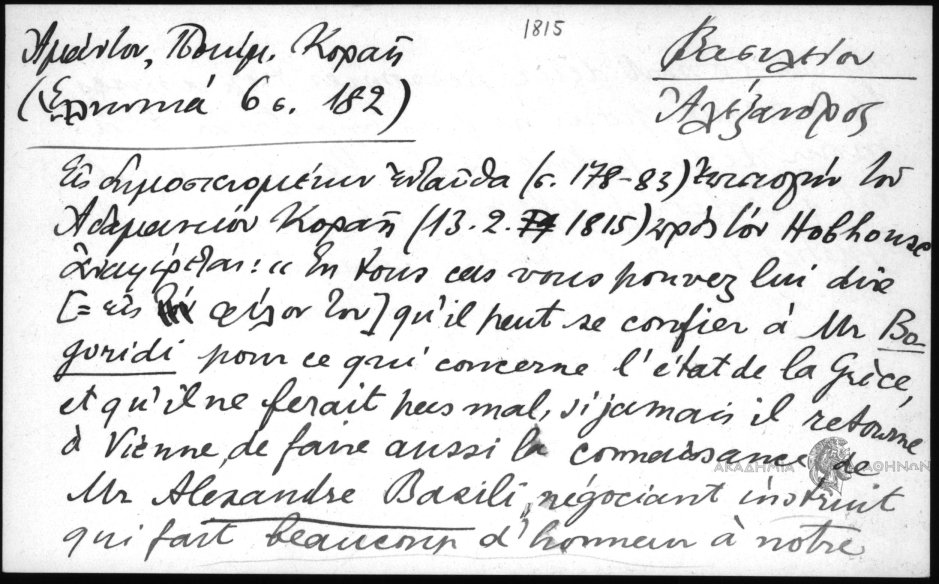 1815
Ἀμάντου, Ποικίλ. Κοραῆ
(Ἑλληνικά 6 σ. 182)
Βασιλείου
Ἀλέξανδρος
Εἰς δημοσιευομένην ἐνταῦθα (σ. 178-83) ἐπιστολήν τοῦ
Ἀδαμαντίου Κοραῆ (13. 2. 1815) πρός τόν Hobhouse
ἀναφέρεται: « En tous cas vous pouvez lui dire
[= εἰς φίλον του] qu'il peut se confier à Mr Bo-
goridi pour ce qui concerne l'état de la Grèce,
et qu'il ne ferait pas mal, si jamais il retourne
à Vienne, de faire aussi la connaissance de
Mr Alexandre Basili, négociant instruit
qui fait beaucoup d'honneur à notre
ΑΚΑΔΗΜΙΑ ΑΘΗΝΩΝ